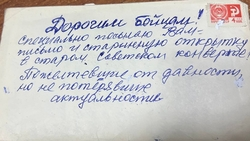 Дорогим бойцам!
специально посылаю Вам-
письмо и старинную открытку
в старом, Советском конверте.
Пожелтевшие от давности,
но не потерявшие
актуальностие